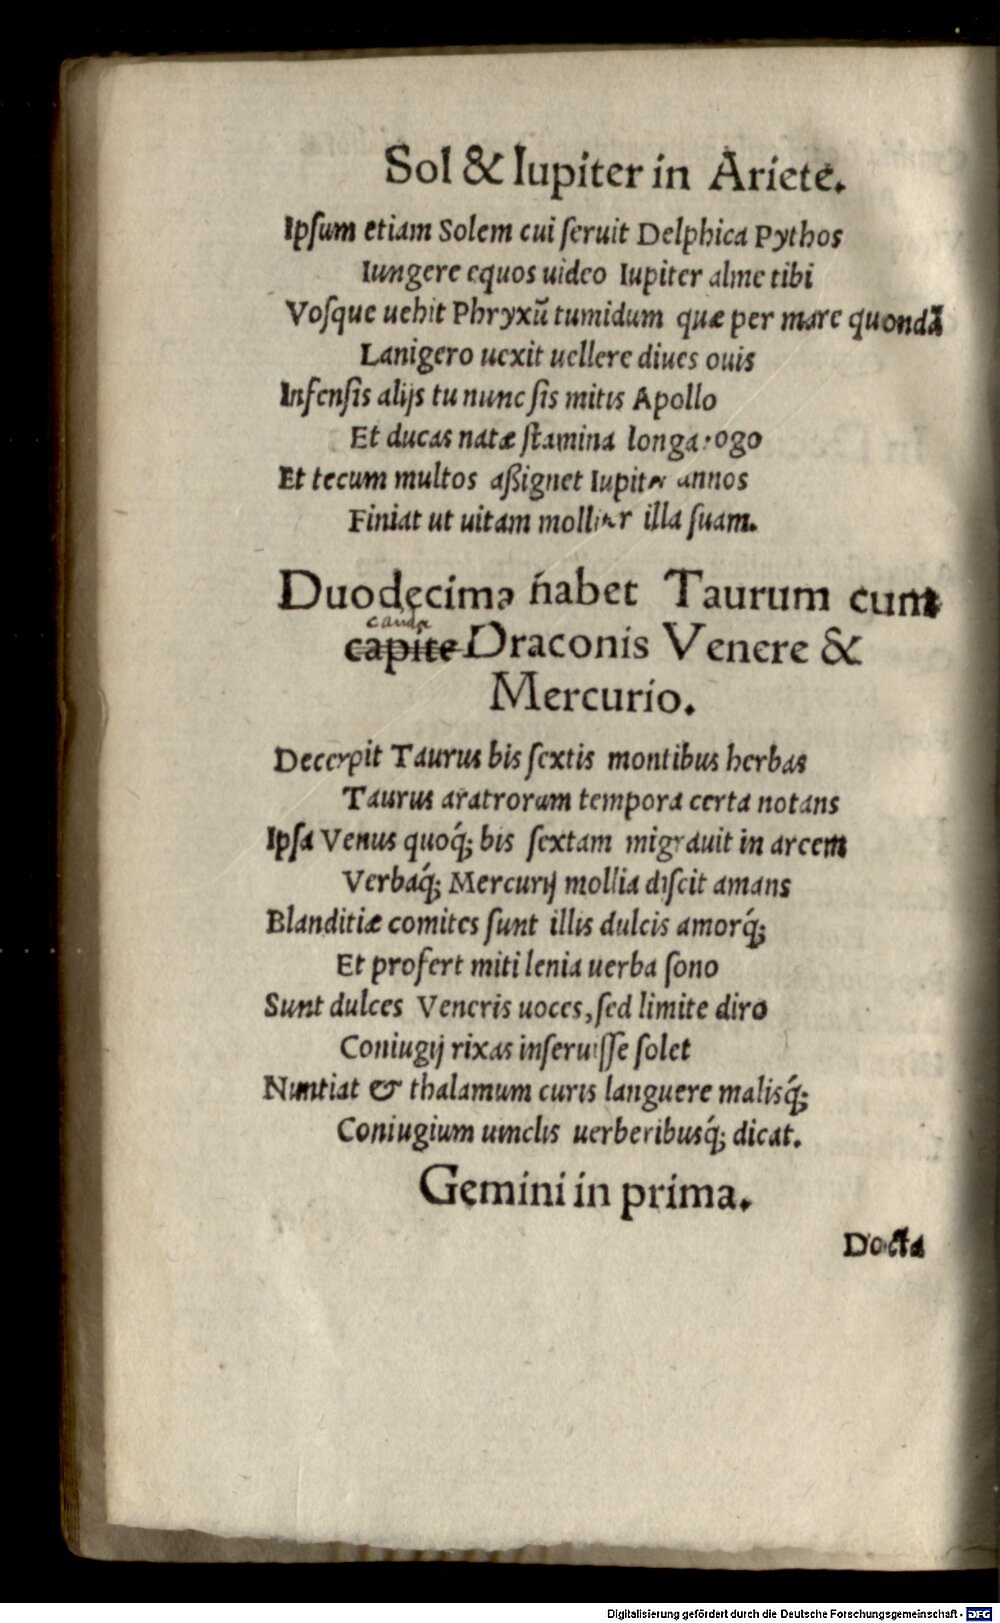 Sol & Iupiter in Ariete.
Ipſum etiam Solem cui ſeruit Delphica Pythos
Iungere equos uideo Iupiter alme tibi
Voſque uehit Phryxū tumidum quæ per mare quondā
Lanigero uexit uellere diues ouis
Infenſis alijs tu nunc ſis mitis Apollo
Et ducas natæ ſtamina longa rogo
Et tecum multos aßignet Iupiter annos
Finiat ut uitam molliter illa ſuam.
Duodecima habet Taurum cum
cauda
capite Draconis Venere &
Mercurio.
Decerpit Taurus bis ſextis montibus herbas
Taurus aratrorum tempora certa notans
Ipſa Venus quoq́; bis ſextam migrauit in arcem
Verbaq́; Mercurij mollia diſcit amans
Blanditiæ comites ſunt illis dulcis amorq́;
Et profert miti lenia uerba ſono
Sunt dulces Veneris uoces, ſed limite diro
Coniugij rixas inſeruiſſe ſolet
Nuntiat & thalamum curis languere malisq́;
Coniugium uinclis uerberibusq́; dicat.
Gemini in prima.
Docta
Digitalisierung gefördert durch die Deutsche Forschungsgemeinschaft - DFG